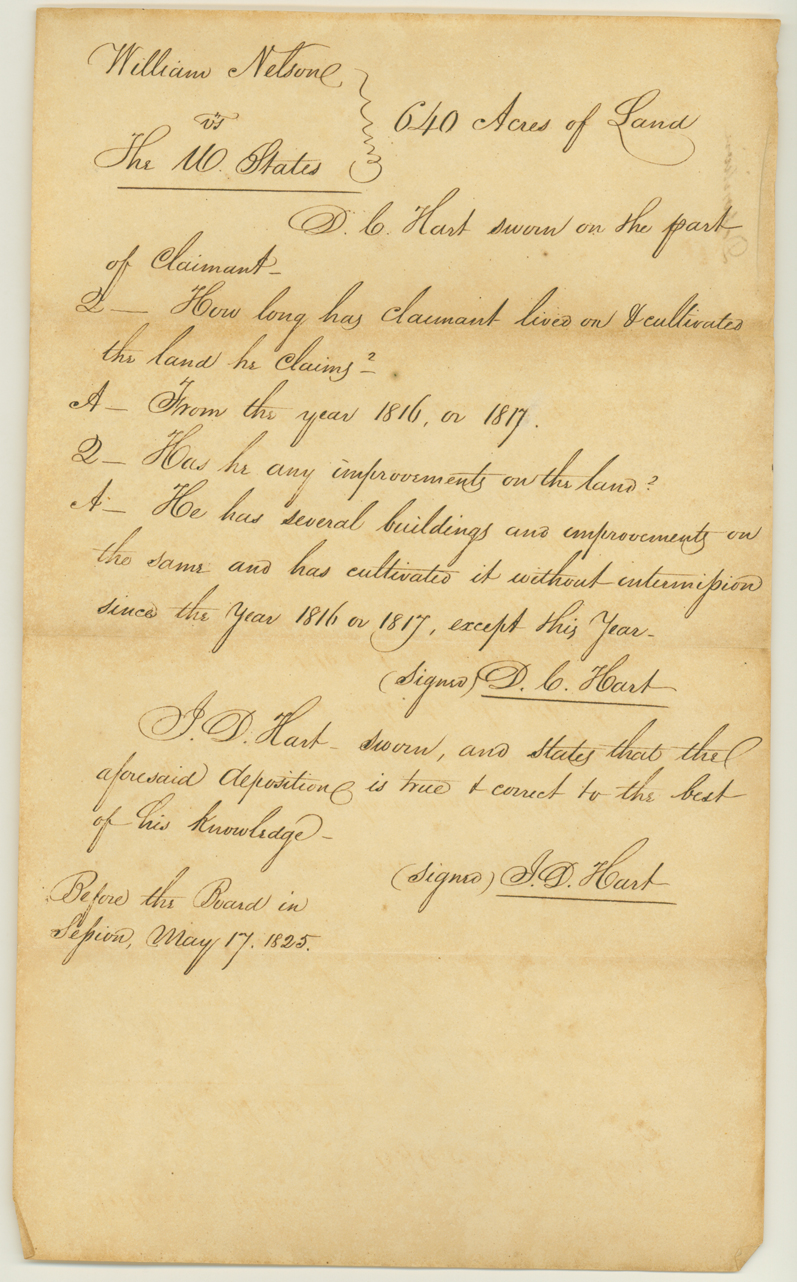 William Nelson
vs
The U. States
640 Acres of Land
D. C. Hart sworn on the part
of Claimant-
Q — How long has claimant lived on & cultivated
the land he claims?-
A — From the year 1816, or 1817.
Q — Has he any improvements on the land?
A — He has several buildings and improvements on
the same and has cultivated it without intermission
since the Year 1816 or 1817, except this Year-
(signed) D. C. Hart
I. D. Hart- sworn, and states that the
aforesaid deposition is true & correct to the best
of his knowledge-
(signed) I. D. Hart
Before the Board in
Session, May 17. 1825.